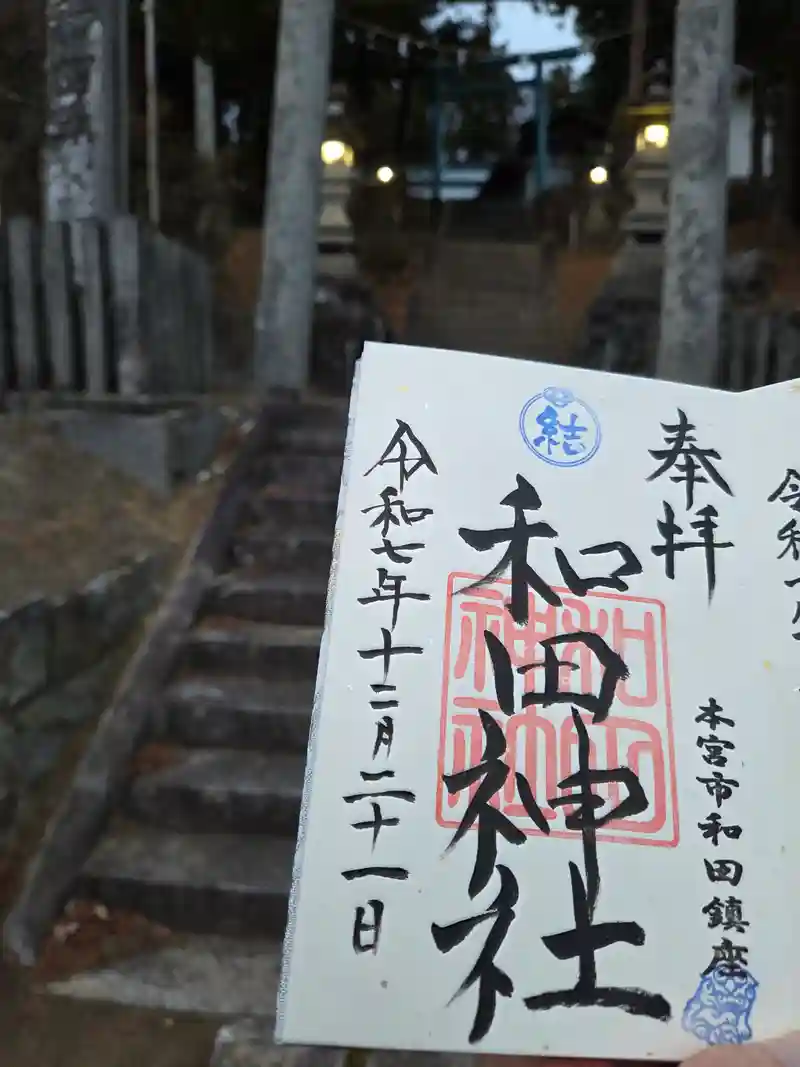 奉拝
本宮市和田鎮座
結
和田神社
和田神社
令和七年十二月二十一日